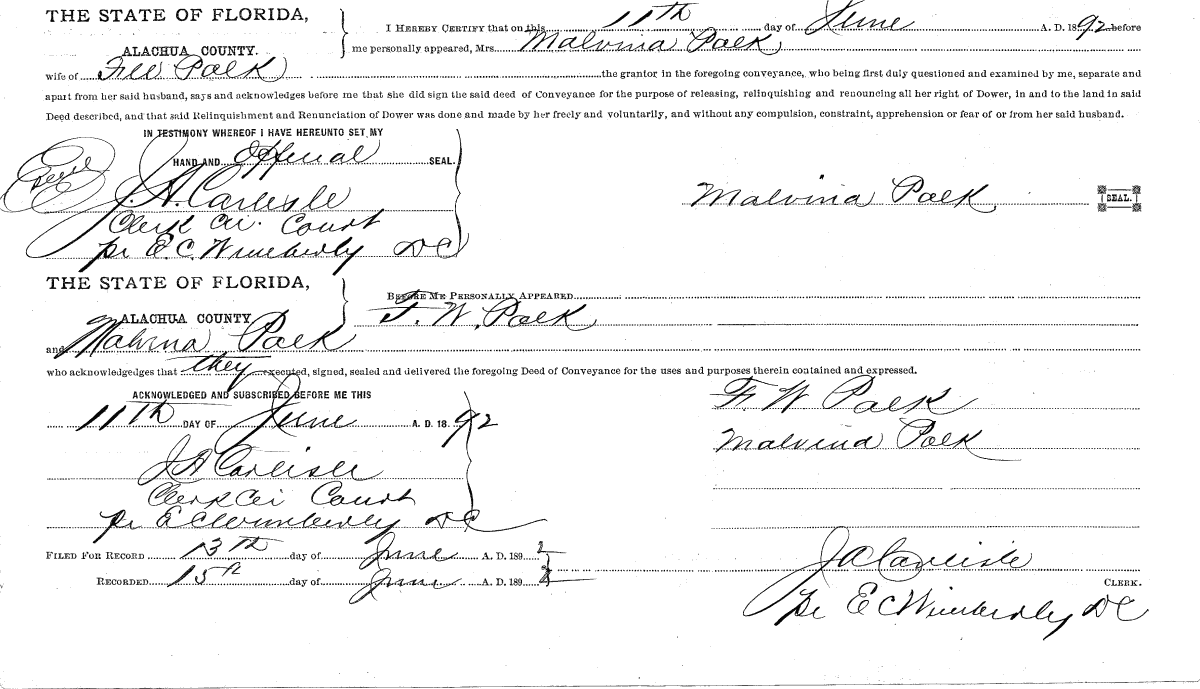 THE STATE OF FLORIDA,
ALACHUA COUNTY.
I HEREBY CERTIFY that on this 11th day of June A. D. 1892 before
me personally appeared, Mrs. Malvina Polk
wife of Polk the grantor in the foregoing conveyance, who being first duly questioned and examined by me, separate and
apart from her said husband, says and acknowledges before me that she did sign the said deed of Conveyance for the purpose of releasing, relinquishing and renouncing all her right of Dower, in and to the land in said
Deed described, and that said Relinquishment and Renunciation of Dower was done and made by her freely and voluntarily, and without any compulsion, constraint, apprehension or fear of or from her said husband.
IN TESTIMONY WHEREOF I HAVE HEREUNTO SET MY
HAND AND Official SEAL.
Seal
J. A. Carlisle
Clerk Cir. Court
pr E. C. Wimberly DC
Malvina Polk SEAL.
THE STATE OF FLORIDA,
ALACHUA COUNTY
BEFORE ME PERSONALLY APPEARED
F. W. Polk
and Malvina Polk
who acknowledgedges that they executed, signed, sealed and delivered the foregoing Deed of Conveyance for the uses and purposes therein contained and expressed.
ACKNOWLEDGED AND SUBSCRIBED BEFORE ME THIS
11th DAY OF June A. D. 1892
J A Carlisle
Clerk Cir Court
pr E C Wimberly DC
F. W Polk
Malvina Polk
FILED FOR RECORD 13th day of June A. D. 1892
RECORDED 15th day of June A. D. 1892
J A Carlisle
CLERK.
pr E C Wimberly DC